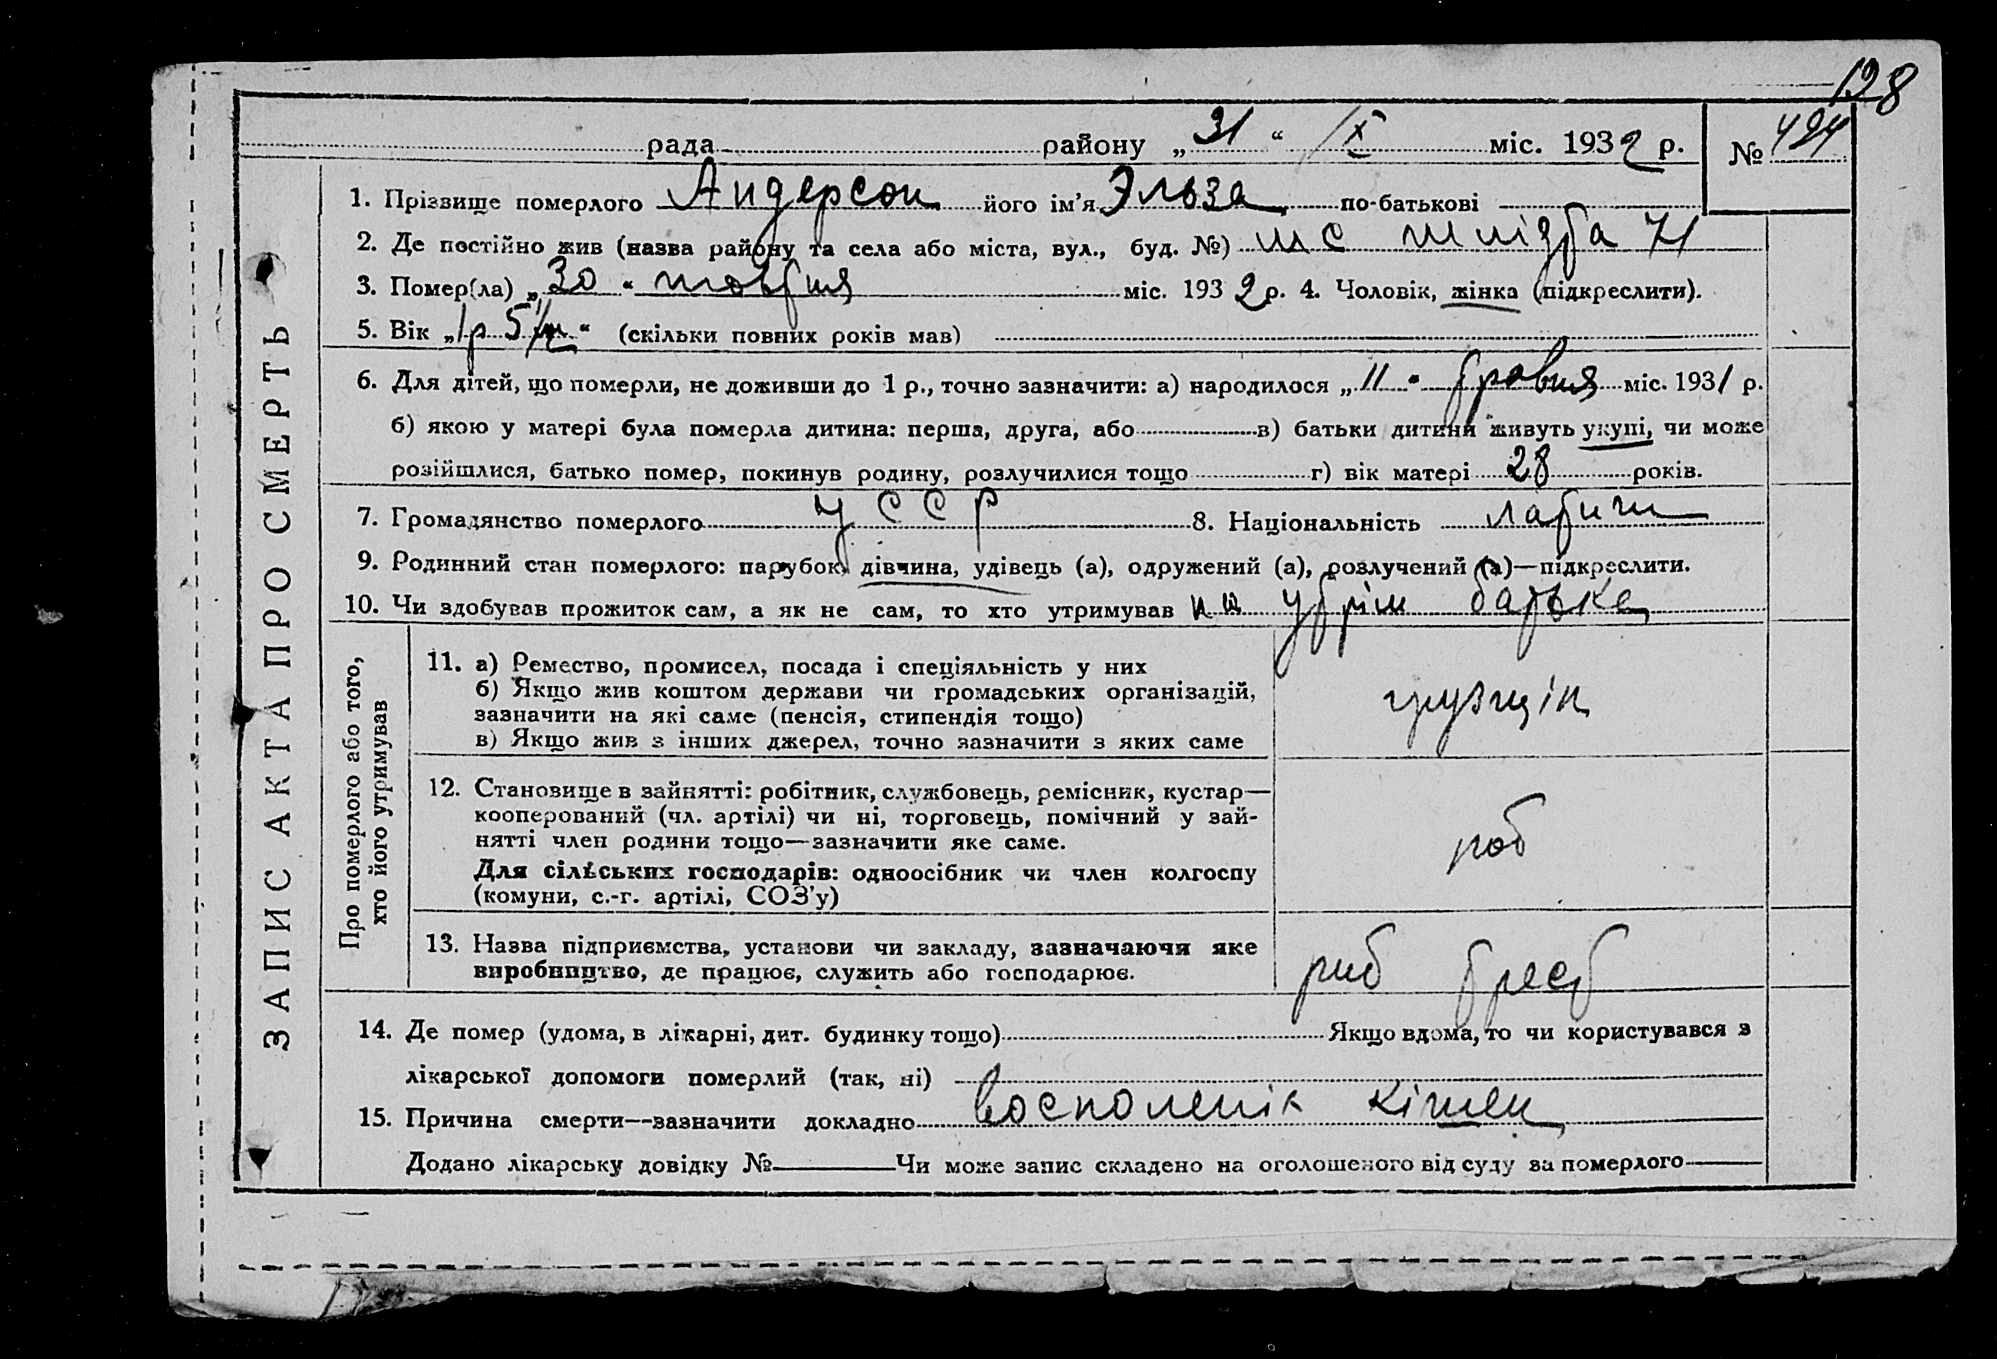 128
рада района „31“ IX міс. 1932 р. № 494
ЗАПИС АКТА ПРО СМЕРТЬ
1. Прізвище померлого Андерсон його ім’я Эльза по-батькові
2. Де постійно жив (назва району та села або міста, вул., буд. №)
3. Помер(ла) „30“ міс. 1932 р. 4. Чоловік, жінка (підкреслити).
5. Вік „1 р 5 “ (скільки повних років мав)
6. Для дітей, що померли, не доживши до 1 р., точно зазначити: а) народилося „11“ міс. 1931 р.
б) якою у матері була померла дитина: перша, друга, або в) батьки дитини живуть укупі, чи може
розійшлися, батько помер, покинув родину, розлучилися тощо г) вік матері 28 років.
7. Громадянство померлого УССР 8. Національність латиш
9. Родинний стан померлого: парубок, дівчина, удівець (а), одружений (а), розлучений (а)—підкреслити.
10. Чи здобував прожиток сам, а як не сам, то хто утримував на утрім батька
Про померлого або того,
хто його утримував
11. а) Ремество, промисел, посада і спеціяльність у них
б) Якщо жив коштом держави чи громадських організацій,
зазначити на які саме (пенсія, стипендія тощо)
в) Якщо жив з інших джерел, точно зазначити з яких саме
грузщік
12. Становище в зайнятті: робітник, службовець, ремісник, кустар—
кооперований (чл. артілі) чи ні, торговець, помічний у зай-
нятті член родини тощо—зазначити яке саме.
Для сільських господарів: одноосібник чи член колгоспу
(комуни, с.-г. артілі, СОЗ’у)
роб
13. Назва підприємства, установи чи закладу, зазначаючи яке
виробництво, де працює, служить або господарює.
риб трест
14. Де помер (удома, в лікарні, дит. будинку тощо) Якщо вдома, то чи користувався з
лікарської допомоги померлий (так, ні)
15. Причина смерти—зазначити докладно восполенік кішен
Додано лікарську довідку № Чи може запис складено на оголошеного від суду за померлого